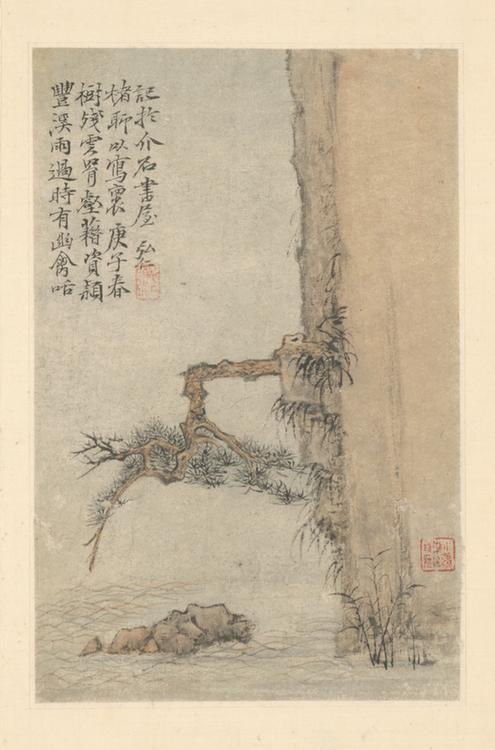 豐溪雨過時有幽禽咶
樹殘雲壑藉資穎
楮聊以寫褱庚子春
記於介石書屋 弘仁